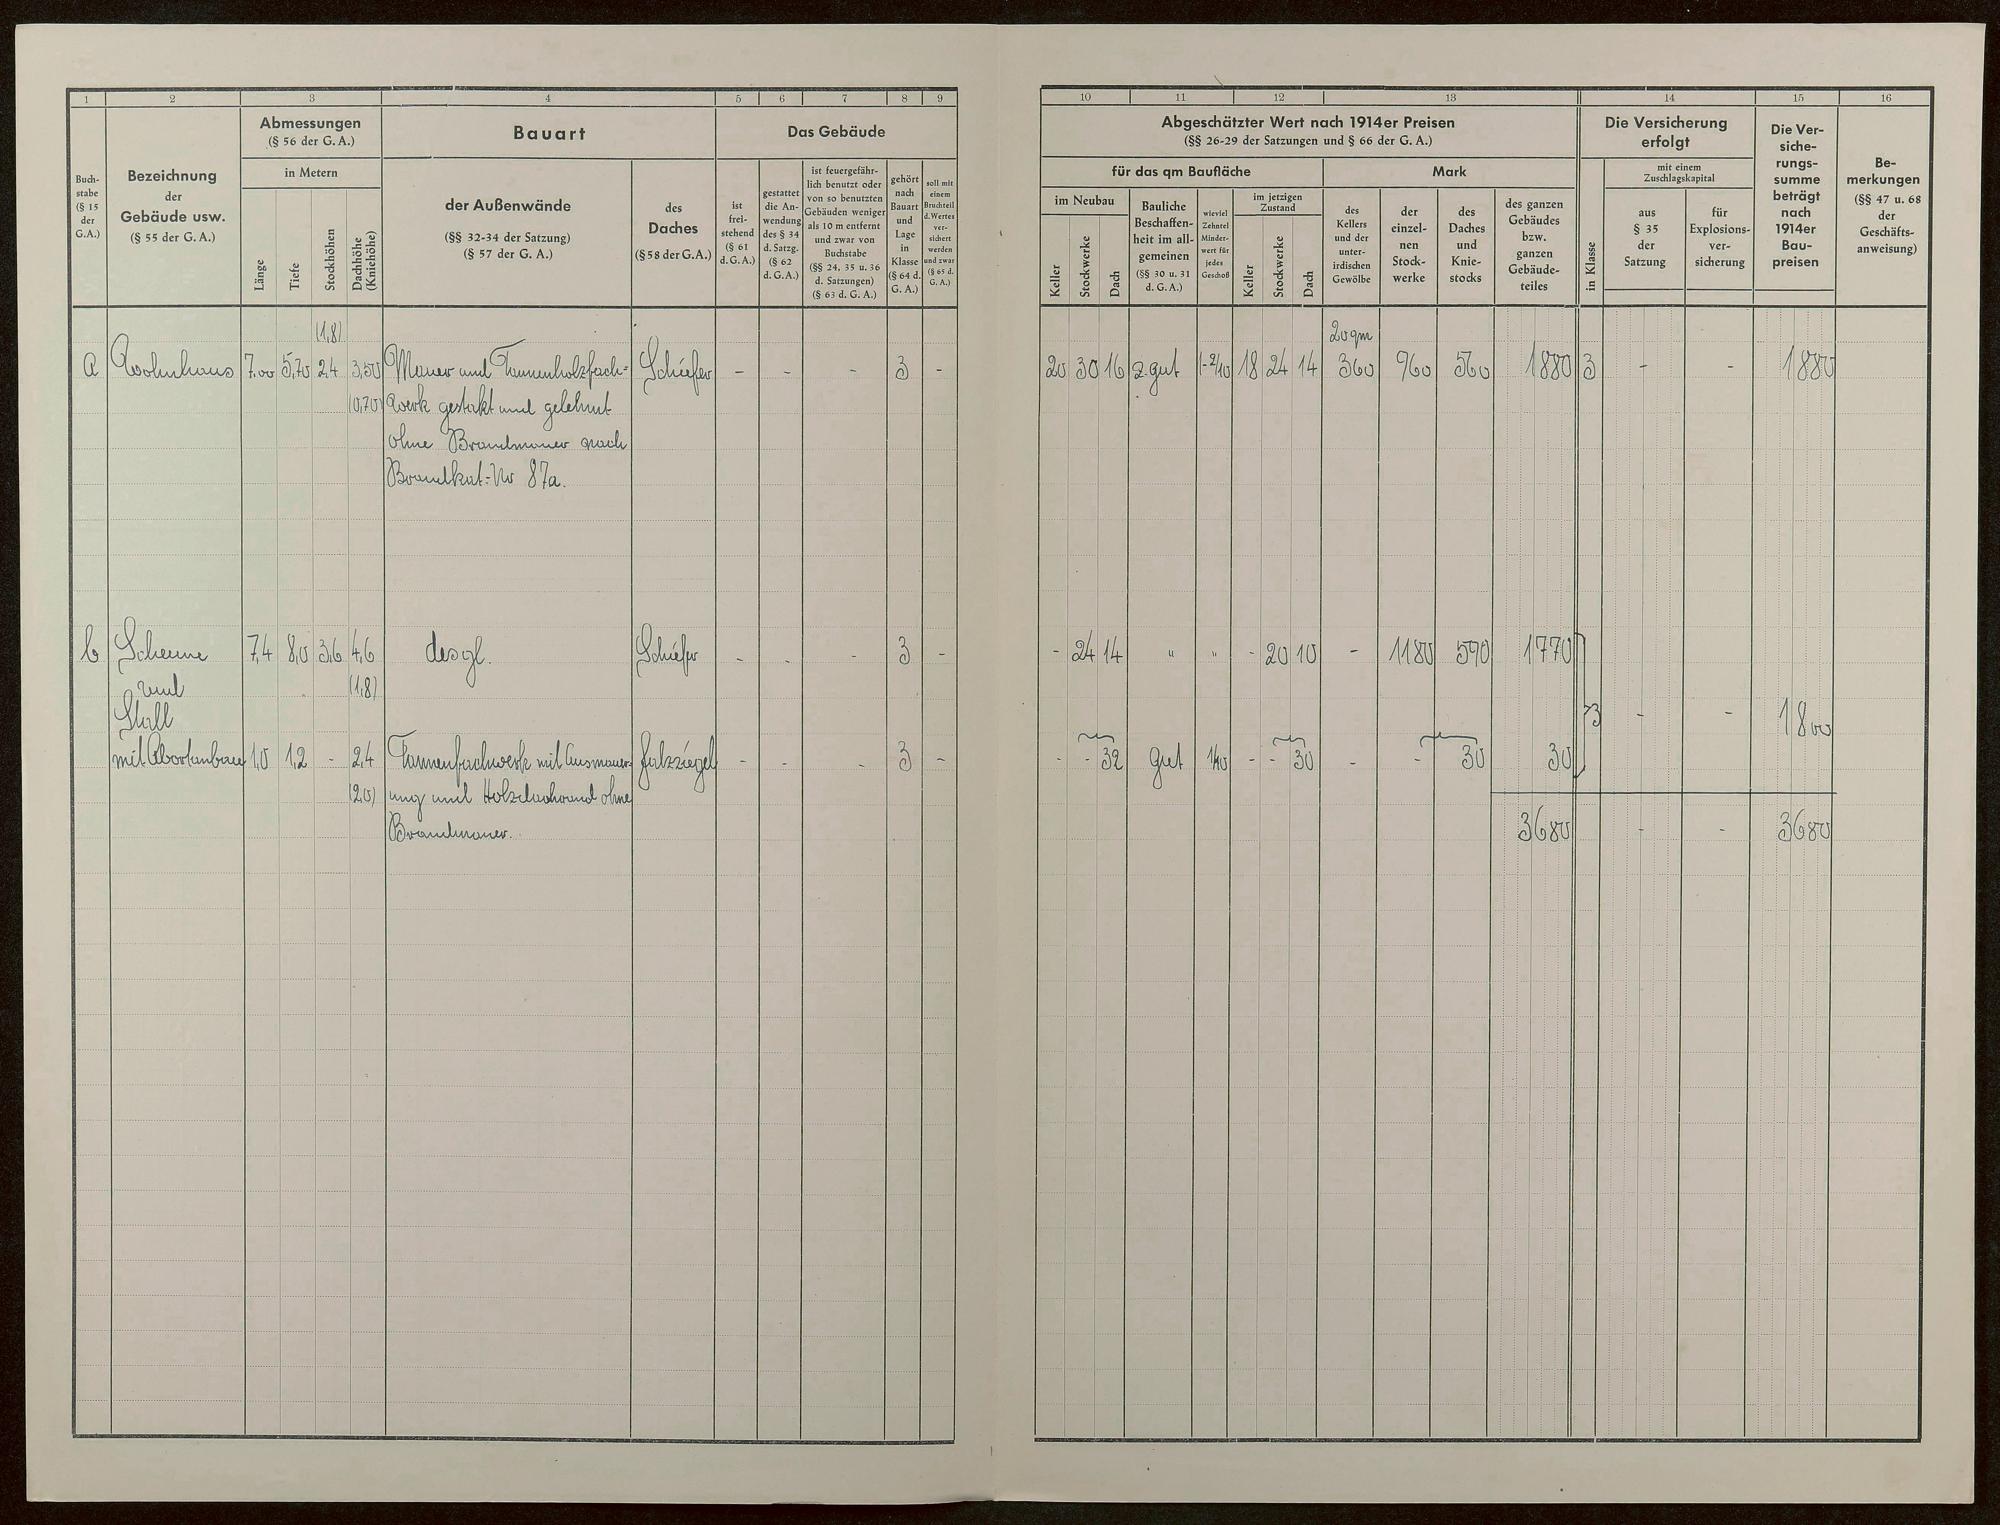 1 2 3 4 5 6 7 8 9
Buch-
stabe
(§ 15
der
G.A.)
Bezeichnung
der
Gebäude usw.
(§ 55 der G. A.)
Abmessungen
(§ 56 der G. A.)
in Metern
Länge
Tiefe
Stockhöhen
Dachhöhe
(Kniehöhe)
Bauart
der Außenwände
(§§ 32-34 der Satzung)
(§ 57 der G. A.)
des
Daches
(§ 58 der G. A.)
Das Gebäude
ist
frei-
stehend
(§ 61
d. G. A.)
gestattet
die An-
wendung
des § 34
d. Satzg.
(§ 62
d. G. A.)
ist feuergefähr-
lich benutzt oder
von so benutzten
Gebäuden weniger
als 10 m entfernt
und zwar von
Buchstabe
(§§ 24, 35 u. 36
d. Satzungen)
(§ 63 d. G. A.)
gehört
nach
Bauart
und
Lage
in
Klasse
(§ 64 d.
G. A.)
soll mit
einem
Bruchteil
d. Wertes
ver-
sichert
werden
und zwar
(§ 65 d.
G. A.)
(1,8)
a Wohnhaus 7.00 5,70 2,4 3,50 Mauer und Tannenholzfach- Schiefer - - - 3 -
(0,70) werk gestakt und gelehmt
ohne Brandmauer nach
Brandkat.-Nr 87a.
b Scheune 7,4 8,0 3,6 4,6 desgl. Schiefer - - - 3 -
und (1,8)
Stall
mit Abortanbau 1,0 1,2 - 2,4 Tannenfachwerk mit Ausmauer- Falzziegel - - - 3 -
(2,0) ung und Holzdachwand ohne
Brandmauer.
10 11 12 13 14 15 16
Abgeschätzter Wert nach 1914er Preisen
(§§ 26-29 der Satzungen und § 66 der G. A.)
für das qm Baufläche
im Neubau
Keller
Stockwerke
Dach
Bauliche
Beschaffen-
heit im all-
gemeinen
(§§ 30 u. 31
d. G. A.)
wieviel
Zehntel
Minder-
wert für
jedes
Geschoß
im jetzigen
Zustand
Keller
Stockwerke
Dach
Mark
des
Kellers
und der
unter-
irdischen
Gewölbe
der
einzel-
nen
Stock-
werke
des
Daches
und
Knie-
stocks
des ganzen
Gebäudes
bzw.
ganzen
Gebäude-
teiles
Die Versicherung
erfolgt
in Klasse
mit einem
Zuschlagskapital
aus
§ 35
der
Satzung
für
Explosions-
ver-
sicherung
Die Ver-
siche-
rungs-
summe
beträgt
nach
1914er
Bau-
preisen
Be-
merkungen
(§§ 47 u. 68
der
Geschäfts-
anweisung)
20 qm
20 30 16 z. gut 1-2/10 18 24 14 360 960 560 1880 3 - - 1880
- 24 14 " " - 20 10 - 1180 590 1770
3 - - 1800
- - 32 gut 1/10 - - 30 - - 30 30
3680 - - 3680